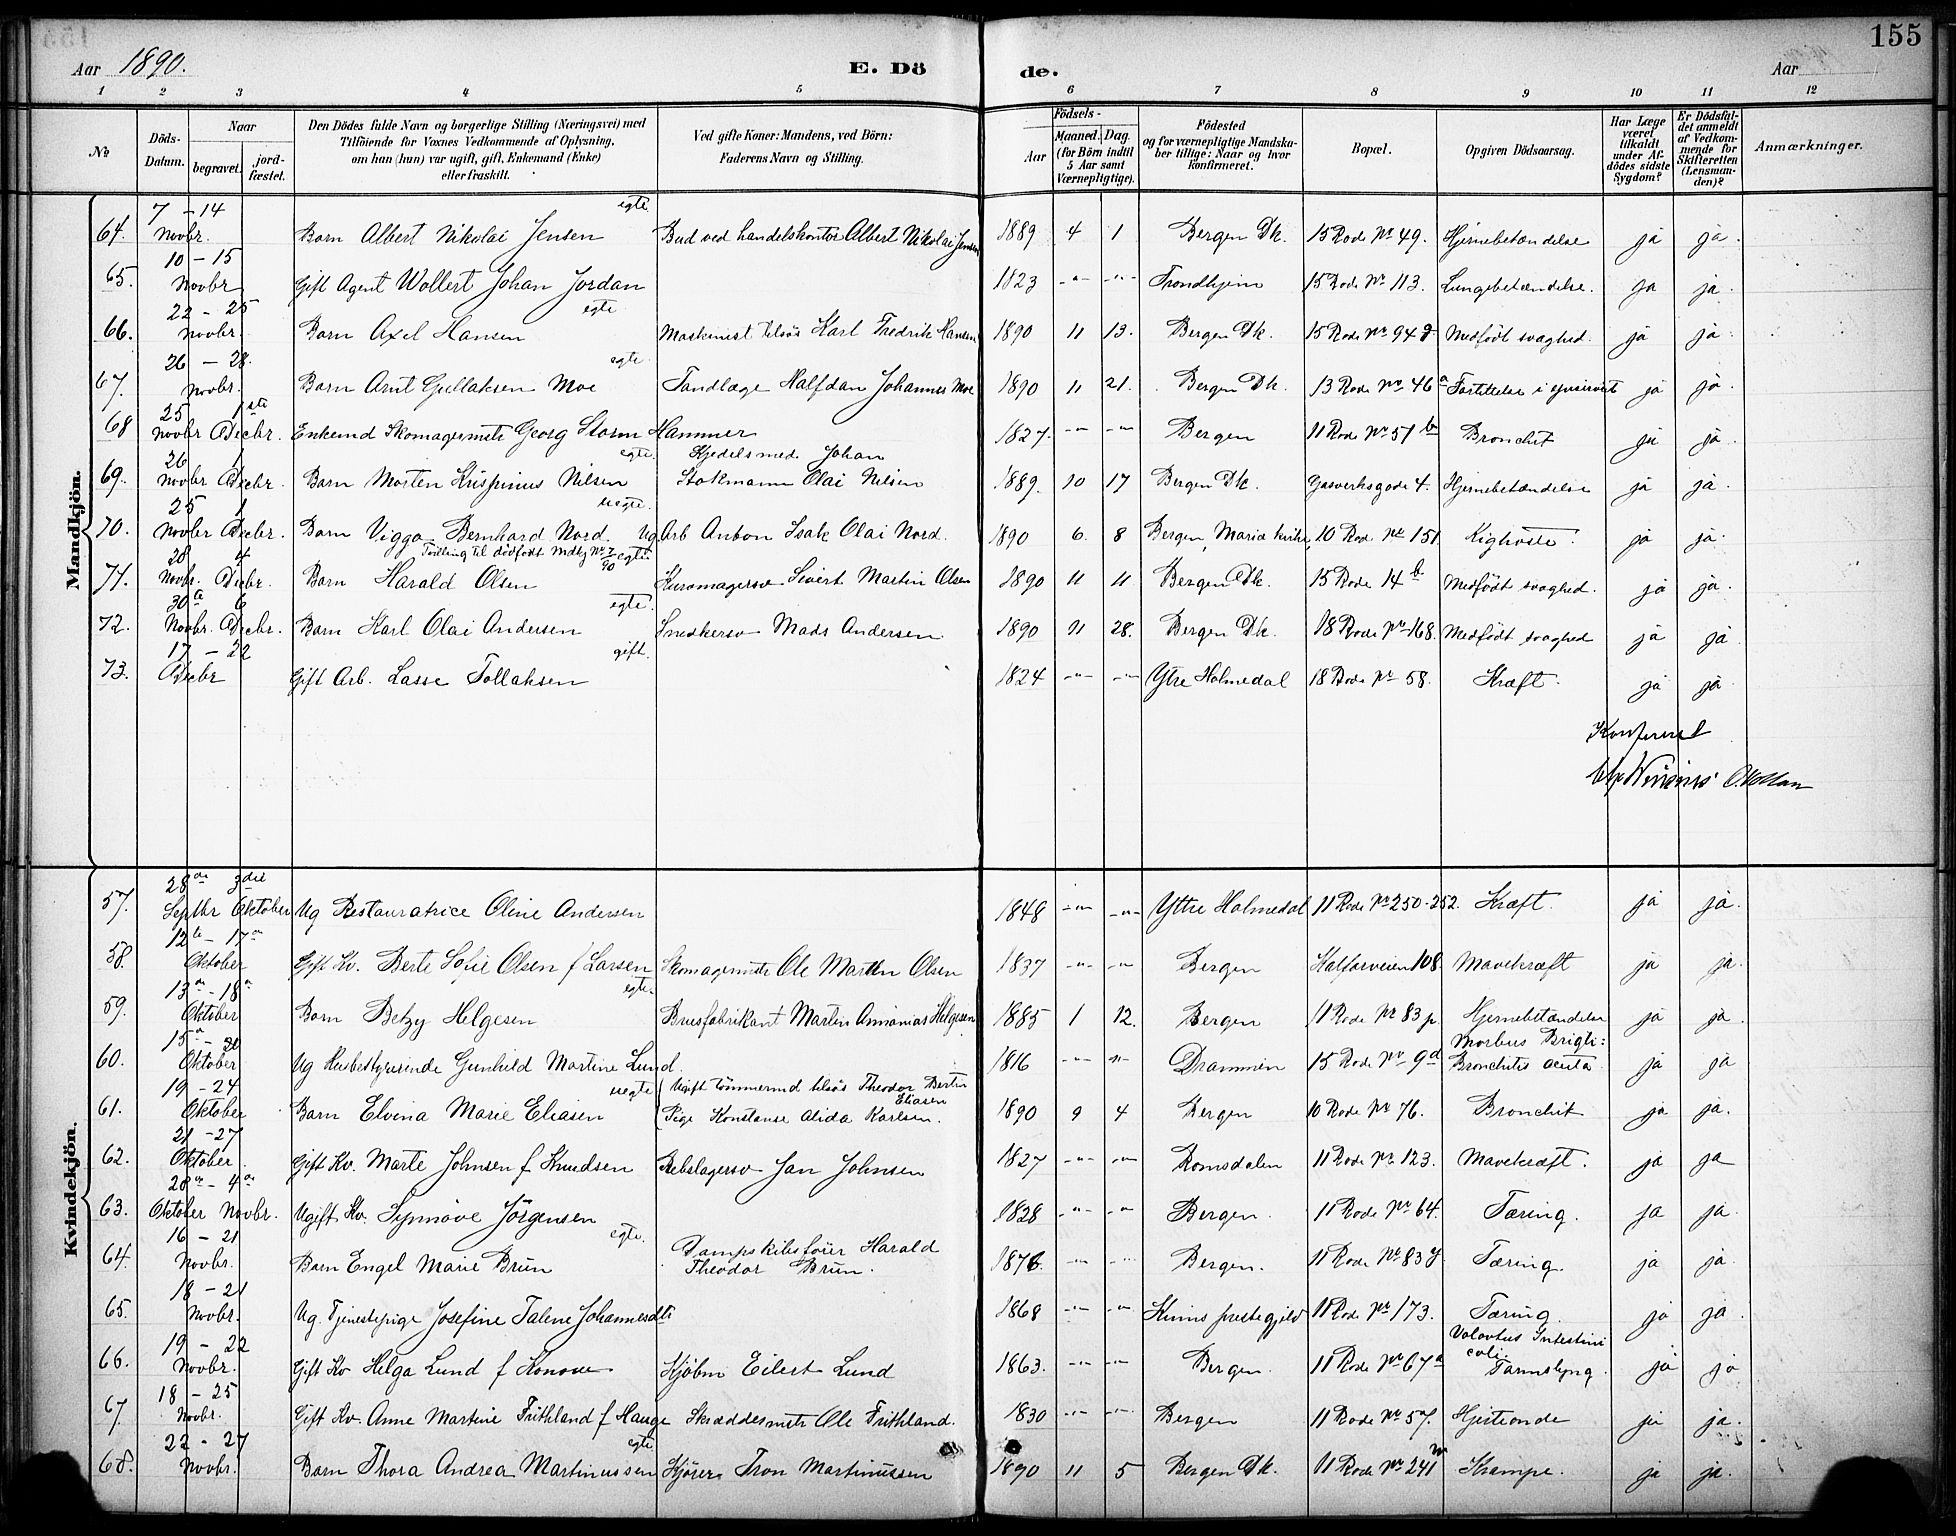 155
Aar 1890. E. Dö de. Aar
1 2 3 4 5 6 7 8 9 10 11 12
No. Döds-Datum. Naar begravet. jord-fæstet. Den Dödes fulde Navn og borgerlige Stilling (Næringsvei) med Tilföiende for Voxnes Vedkommende af Oplysning, om han (hun) var ugift, gift, Enkemand (Enke) eller fraskilt. Ved gifte Koner: Mandens, ved Börn: Faderens Navn og Stilling. Födsels- Aar Maaned. Dag. (for Börn indtil 5 Aar samt Værnepligtige). Födested og for værnepligtige Mandska-ber tillige: Naar og hvor konfirmeret. Bopæl. Opgiven Dödsaarsag. Har Læge været tilkaldt under Af-dödes sidste Sygdom? Er Dödsfal-det anmeldt af Vedkom-mende for Skifteretten (Lensman-den)? Anmærkninger.
Mandkjön.
64. 7 - 14 Novbr. Barn Albert Nikolai Jensen egte Bud ved handelskontor Albert Nikolai Jensen 1889 4 1 Bergen Dk. 15 Rode No 49. Hjernebetændelse ja ja.
65. 10 - 15 Novbr Gift Agent Wollert Johan Jordan 1823 -"- -"- Trondhjem 15 Rode No 113. Lungebetændelse. ja ja.
66. 22 - 25 Novbr. Barn Axel Hansen egte Maskinist tilsös Karl Fredrik Hansen 1890 11 13. Bergen Dk. 15 Rode No 94 Medfödt svaghed. ja ja.
67. 26 - 28. Novbr. Barn Arnt Gullaksen Moe egte. Tandlæge Halfdan Johannes Moe 1890 11 21. Bergen Dk. 13 Rode No 46 a ja ja.
68 25 Novbr 1ste Decbr. Enkemd Skomagermstr Georg Storm Hammer 1827. -"- -"- Bergen 11 Rode No 51 b Bronchit ja ja.
69. 26 Novbr 1 Decbr. Barn Morten Krispinus Nilsen egte. Kjedelsmed. Johan Stokmann Olai Nilsen 1889. 10 17 Bergen Dk. Gasverksgade 4. Hjernebetændelse ja ja.
70. 25 Novbr 1 Decbr. Barn Viggo Bernhard Nord. uegte. Ug. Arb Anton Isak Olai Nord. 1890 6. 8 Bergen, Maria kirke, 10 Rod. No 151 Kighoste. ja ja.
71. 28 Novbr. 4 Decbr. Barn Harald Olsen Tvilling til dödfödt Mdkj No 7/90 egte. Sivert Martin Olsen 1890 11 11 Bergen Dk. 15 Rode 14 b Medfödt svaghed. ja ja.
72. 30 Novbr. 6 Decbr. Barn Karl Olai Andersen egte. Snedkersv Mads Andersen 1890 11 28. Bergen Dk. 18 Rode No 168. Medfödt svaghed ja ja
73. 17 - 22 Decbr Gift Arb. Lasse Tollaksen gift. 1824 -"- -"- Ytre Holmedal 18 Rode No 58. Kræft. ja ja
Konfereret
Kvindekjön.
57. 28de Septbr 3die Oktober Ug Restauratrice Oline Andersen 1848 -"- -"- Yttre Holmedal 11 Rode No 250-252. Kræft. ja ja.
58. 12te - 17 Oktober Gift Kv. Berte Sofie Olsen f Larsen Skomagermstr Ole Martin Olsen 1837 -"- -"- Bergen Kalfarveien 108. Mavekræft ja ja.
59. 13 - 18 Oktober Barn Betzy Helgesen egte. Brusfabrikant Martin Annanias Helgesen 1885 1 12. Bergen 11 Rode No 83 p Hjernebetændelse ja ja.
60. 15 - 20 Oktober Ug Husbestyrerinde Gunhild Martine Lund. 1816 -"- -"- Drammen 15 Rode No 9 d Morbus Brigti: Bronchitis acuta ja ja
61. 19 - 24 Oktober Barn Elvina Marie Eliasen uegte (Ugift Tömmermd tilsös Theodor Bertin Eliasen (Pige Konstanse Alida Karlsen. 1890 9 4 Bergen 10 Rode No 76. Bronchit ja ja.
62. 21 - 27 Oktober. Gift Kv. Marte Johnsen f Knudsen Rebslagersv Jan Johnsen 1827 -"- -"- Romsdalen 11 Rode No 123. Mavekræft. ja ja
63. 28 Oktober 4 Novbr. Ugift Kv. Synnöve Jörgensen 1828 -"- -"- Bergen. 11 Rode No 64. Tæring. ja ja.
64. 16 - 21 Novbr. Barn Engel Marie Brun egte. Dampskibsförer Harald Theodor Brun. 1876. -"- -"- Bergen. 11 Rode No 83 y Tæring. ja ja.
65. 18 - 21 Novbr. Ug. Tjenestepige Josefine Talene Johannesdtr 1868 -"- -"- Kinns prestegjeld 11 Rode No 173. Tæring. ja ja.
66. 19 - 22 Novbr. Gift Kv Helga Lund f Konow Kjöbm Eilert Lund 1863. -"- -"- Bergen. 11 Rode No 67 a Volovtus Intestini coli Tarmslyng. ja ja
67 18 - 25 Novbr. Gift Kv. Anne Martine Frithland f Hauge Skræddermstr Ole Frithland. 1830 -"- -"- Bergen 11 Rode No 57. Hjerteonde ja ja.
68. 22 - 27 Novbr. Barn Thora Andrea Martinussen egte Kjörer Tron Martinussen 1890 11 5 Bergen Dk. 11 Rode No 241 Krampe. ja ja.